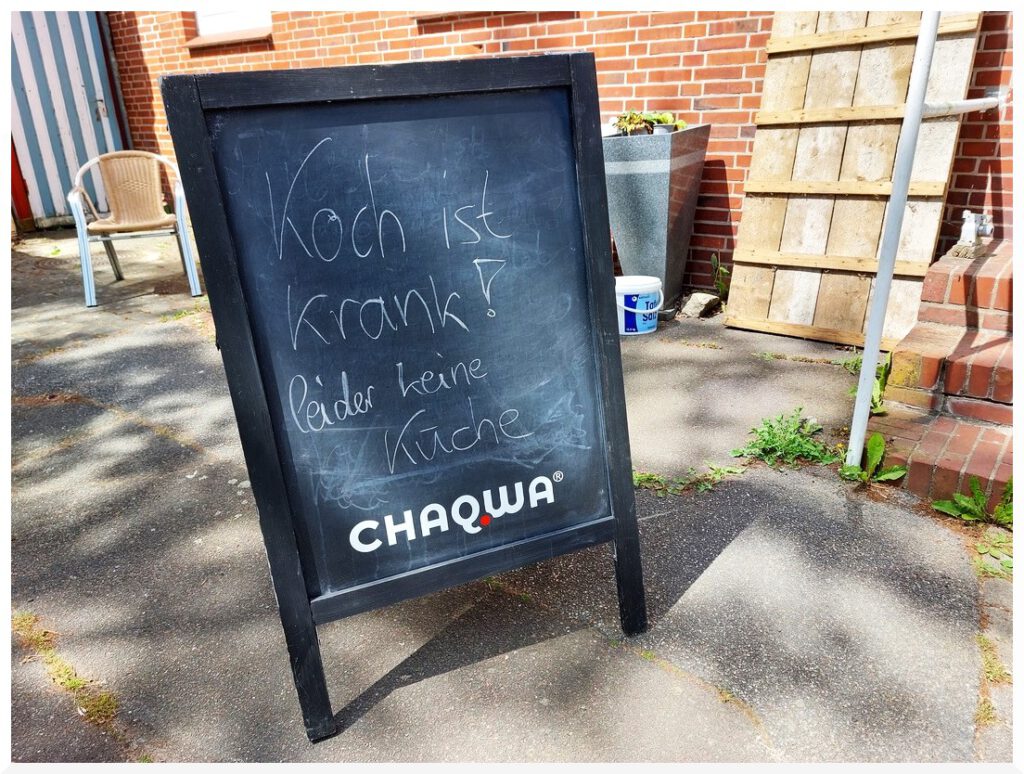 Koch ist
krank!
leider keine
Küche
CHAQWA®